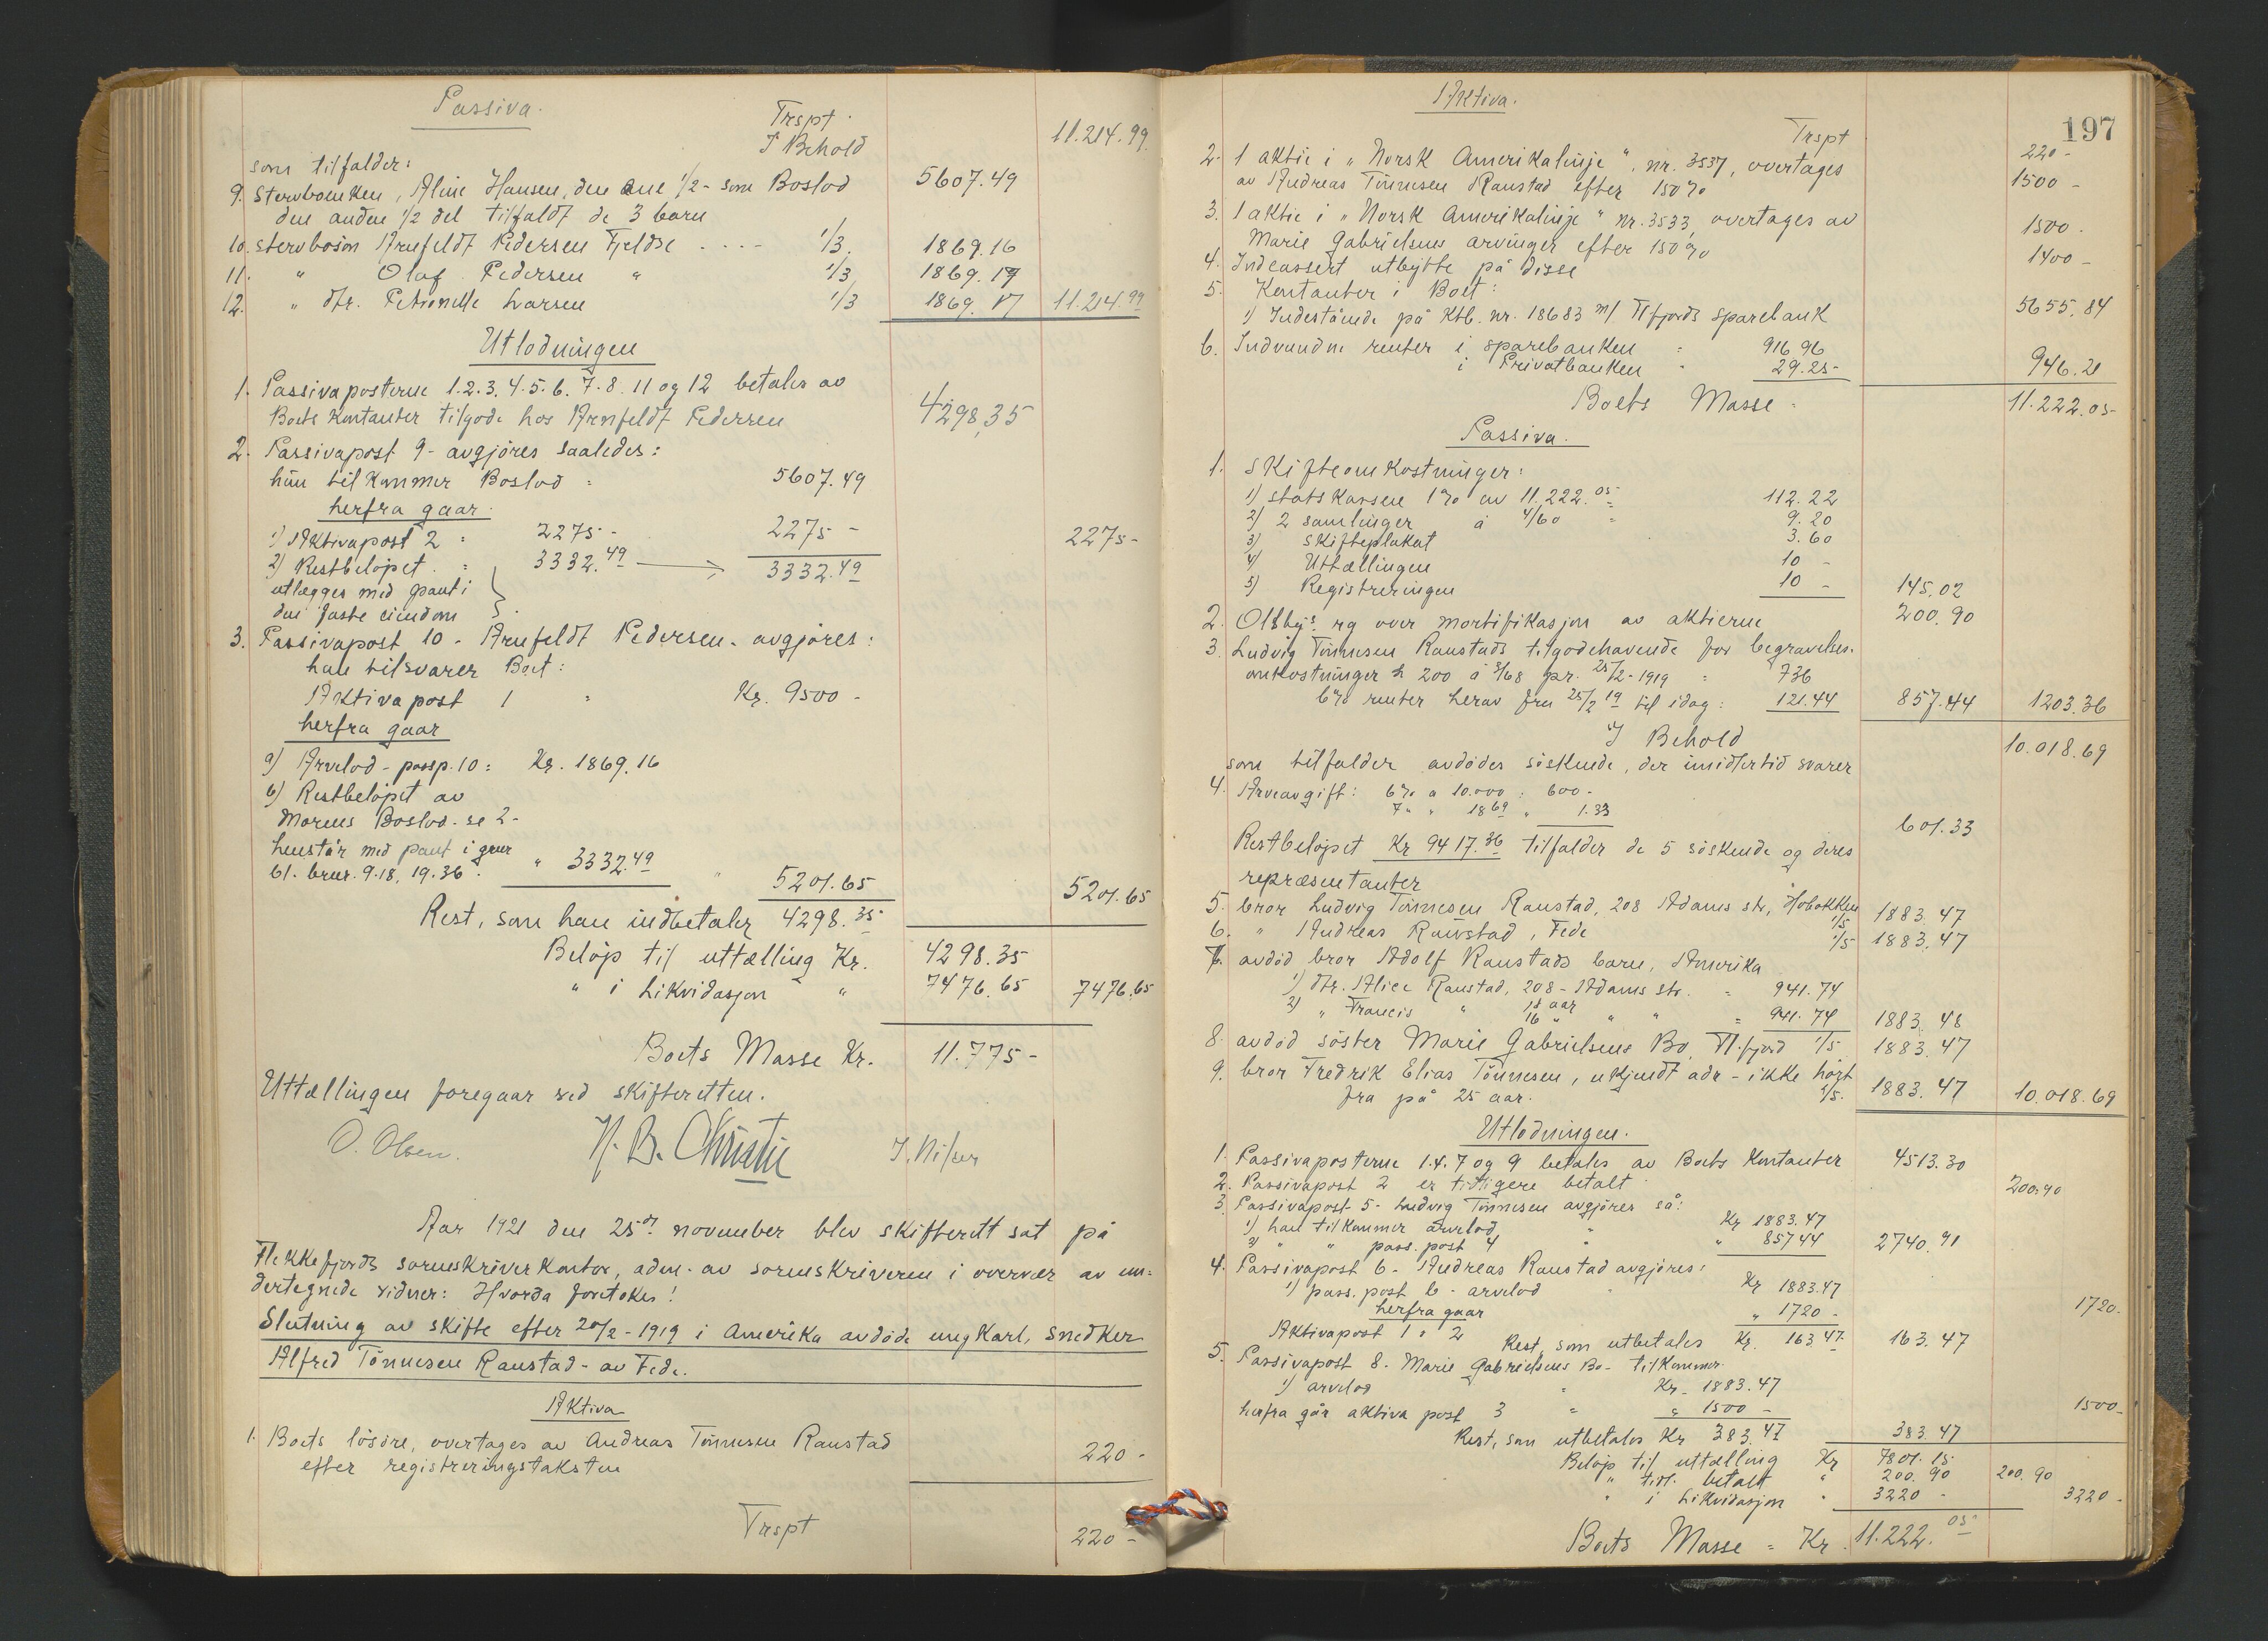 Passiva.
Trspt. 11.214.99
I Behold
som tilfalder:
9. Stervboenken, Aline Hansen, den ene 1/2 - som Boslod 5607.49
den anden 1/2 del tilfaldt de 3 barn
10. stervbosøn Arnfeldt Pedersen Fjeldse .... 1/3. 1869.16
11. " Olaf Pedersen " 1/3 1869.17
12. " dtr. Petronelle Larsen 1/3 1869.17 11.214.99
Utlodningen
1. Passivaposterne 1.2.3.4.5.6.7.8.11 og 12 betales av
Boets Kontanter tilgode hos Arnfeldt Pedersen 4298,35
2. Passivapost 9 - avgjøres saaledes:
hun tilkommer Boslod = 5607.49
herfra gaar.
1) Aktivapost 2 = 2275 - 2275 - 2275 -
2) Restbeløpet = 3332.49 3332.49
utlægges med pant i
den faste eiendom
3. Passivapost 10 - Arnfeldt Pedersen - avgjøres:
han tilsvarer Boet:
Aktivapost 1 " Kr. 9500 -
herfra gaar
a) Arvelod - passp. 10 = Kr. 1869.16
b) Restbeløpet av
Morens Boslod - se 2 -
henstår med pant i gnr
61. brnr. 9.18, 19.36. " 3332.49 " 5201.65 5201.65
Rest, som han indbetaler 4298.35
Beløp til uttælling Kr. 4298.35
" i Likvidasjon " 7476.65 7476.65
Boets Masse Kr. 11.775 -
Uttællingen foregaar ved skifteretten.
O. Olsen. H. B. Christie J. Nilsen
Aar 1921 den 25de november blev skifterett sat på
Flekkefjords sorenskriverkontor, adm. av sorenskriveren i overvær av un=
dertegnede vidner: Hvorda foretokes!
Slutning av skifte efter 20/2 - 1919 i Amerika avdøde ungkarl, snedker
Alfred Tønnesen Raustad - av Fede.
Aktiva
1. Boets løsøre, overtages av Andreas Tønnesen Raustad
efter registreringstaksten 220 -
Trspt 220 -
Aktiva.
197
Trspt 220 -
2. 1 aktie i "Norsk Amerikalinje", nr. 3537, overtages
av Andreas Tønnesen Raustad efter 150 % 1500 -
3. 1 aktie i "Norsk Amerikalinje" nr. 3533, overtages av
Marie Gabrielsens arvinger efter 150 % 1500 -
4. Indcassert utbytte på disse 1400 -
5. Kontanter i Boet:
1) Indestående på Ktb. nr. 18683 m/ Fl.fjords sparebank 5655.84
6. Indvundne renter i sparebanken = 916.96
i Privatbanken " 29.25 - 946.21
Boets Masse = 11.222.05 -
Passiva.
1. Skifteomkostninger:
1) statskassen 1% av 11.222.05 112.22
2) 2 samlinger à 4/60 = 9.20
3) Skifteplakat 3.60
4) Uttællingen 10 -
5) Registreringen 10 - 145.02
2. Olsbys rg over mortifikasjon av aktierne 200.90
3. Ludvig Tønnesen Raustads tilgodehavende for begravelses-
omkostninger $ 200 à 3/68 pr. 25/2 - 1919 = 736
6% renter herav fra 25/2 19 til idag: 121.44 857.44 1203.36
I Behold 10.018.69
som tilfalder avdødes søskende, der imidlertid svarer
4. Arveavgift: 6% a 10.000 : 600 -
7 " " 18.69 " 1.33 601.33
Restbeløpet Kr 9417.36 tilfalder de 5 søskende og deres
repræsentanter
5. bror Ludvig Tønnesen Raustad, 208 Adams str, Hobokken 1/5 1883.47
6. " Andreas Raustad, Fede 1/5 1883.47
7. avdød bror Adolf Raustads barn, Amerika
1) dtr. Alice Raustad, 208 - Adams str. = 941.74
18 aar
2) " Francis " 16 " " " = 941.74 1883.48
8. avdød søster Marie Gabrielsens Bo, Fl.fjord 1/5 1883.47
9. bror Fredrik Elias Tønnesen, ukjendt adr - ikke hørt
fra på 25 aar. 1/5. 1883.47 10.018.69
Utlodningen.
1. Passivaposterne 1.4.7 og 9 betales av Boets Kontanter 4513.30
2. Passivapost 2 er tidligere betalt 200.90
3. Passivapost 5 - Ludvig Tønnesen avgjøres så:
1) han tilkommer arvelod " Kr 1883.47
2) " " pass. post 4 " " 857.44 2740.91
4. Passivapost 6 - Andreas Raustad avgjøres:
1) pass. post 6 - arvelod " Kr 1883.47
herfra gaar
Aktivapost 1 & 2 " 1720 - 1720.
Rest, som utbetales Kr. 163.47 163.47
5. Passivapost 8. Marie Gabrielsens Bo - tilkommer
1) arvelod = Kr. 1883.47
herfra går aktiva post 3 = " 1500 - 1500 -
Rest, som utbetales Kr 383.47 383.47
Beløp til uttælling Kr 7801.15
" tidl. betalt " 200.90 200.90
" i Likvidasjon " 3220 - 3220 -
Boets Masse = Kr. 11.222.05